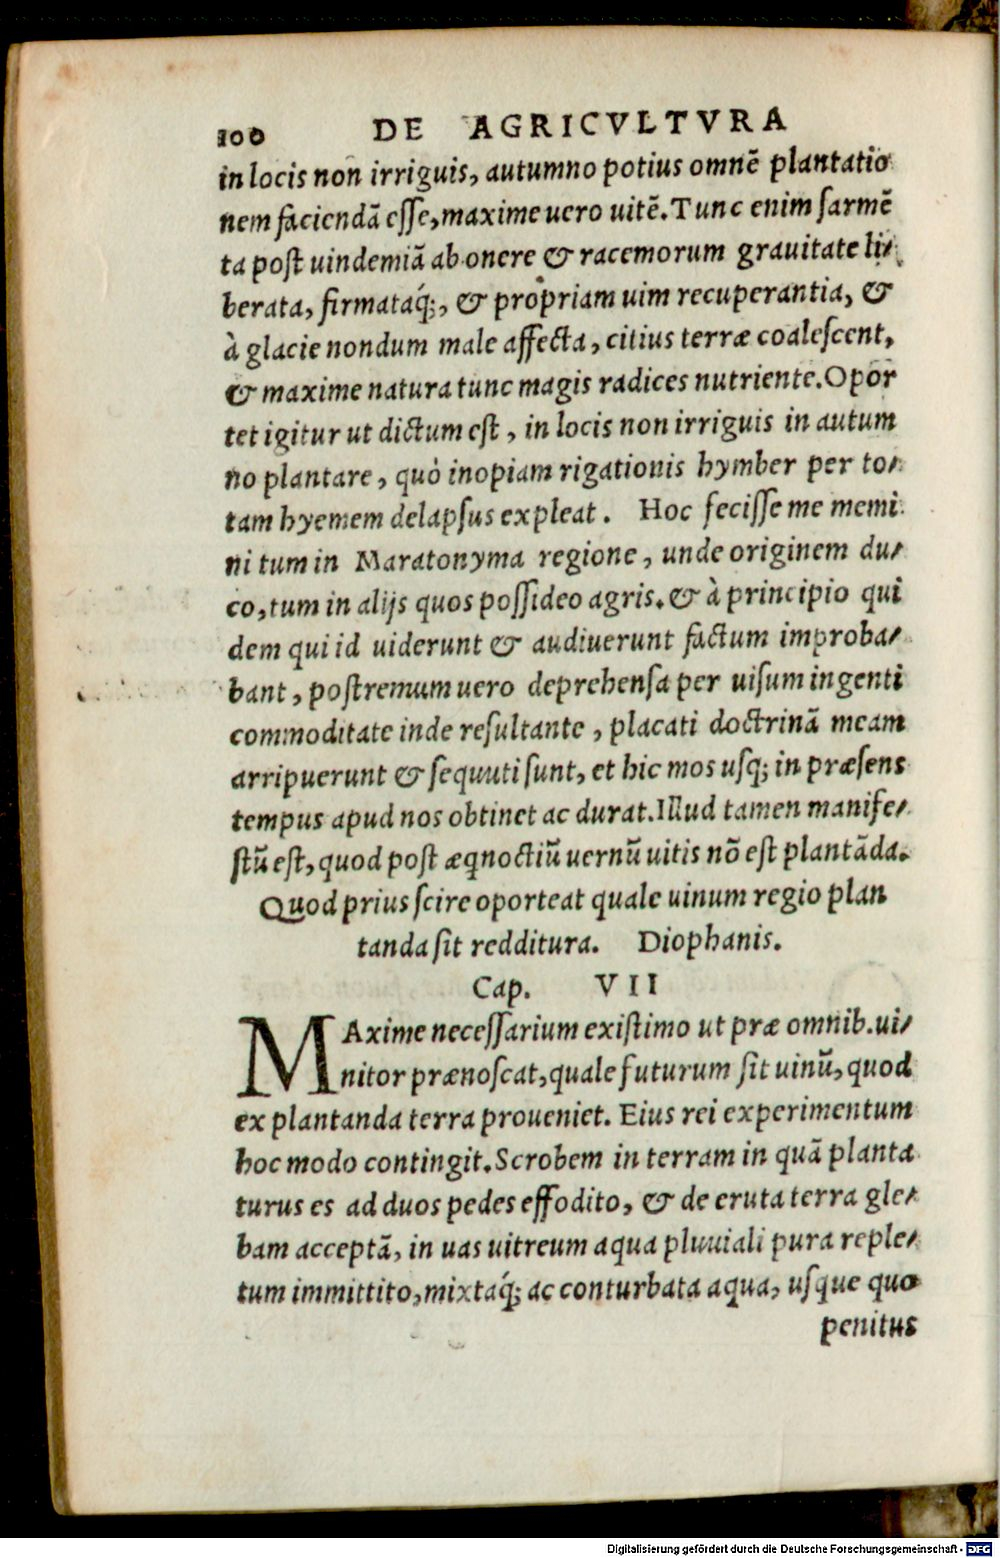 100 DE AGRICVLTVRA
in locis non irriguis, autumno potius omnẽ plantatio
nem faciendã esse, maxime uero uitẽ. Tunc enim sarmẽ
ta post uindemiã ab onere & racemorum grauitate li/
berata, firmataq́;, & propriam uim recuperantia, &
à glacie nondum male affecta, citius terræ coalescent,
& maxime natura tunc magis radices nutriente. Opor
tet igitur ut dictum est, in locis non irriguis in autum
no plantare, quò inopiam rigationis hymber per to/
tam hyemem delapsus expleat. Hoc fecisse me memi
ni tum in Maratonyma regione, unde originem du/
co, tum in alijs quos possideo agris. & à principio qui
dem qui id uiderunt & audiuerunt factum improba/
bant, postremum uero deprehensa per uisum ingenti
commoditate inde resultante, placati doctrinã meam
arripuerunt & sequuti sunt, et hic mos usq; in præsens
tempus apud nos obtinet ac durat. Illud tamen manife/
stũ est, quod post æqnoctiũ uernũ uitis nõ est plantãda.
Quod prius scire oporteat quale uinum regio plan
tanda sit redditura. Diophanis.
Cap. VII
MAxime necessarium existimo ut præ omnib. ui/
nitor prænoscat, quale futurum sit uinũ, quod
ex plantanda terra proueniet. Eius rei experimentum
hoc modo contingit. Scrobem in terram in quã planta
turus es ad duos pedes effodito, & de eruta terra gle/
bam acceptã, in uas uitreum aqua pluuiali pura reple/
tum immittito, mixtaq́; ac conturbata aqua, usque quo
penitus
Digitalisierung gefördert durch die Deutsche Forschungsgemeinschaft - DFG